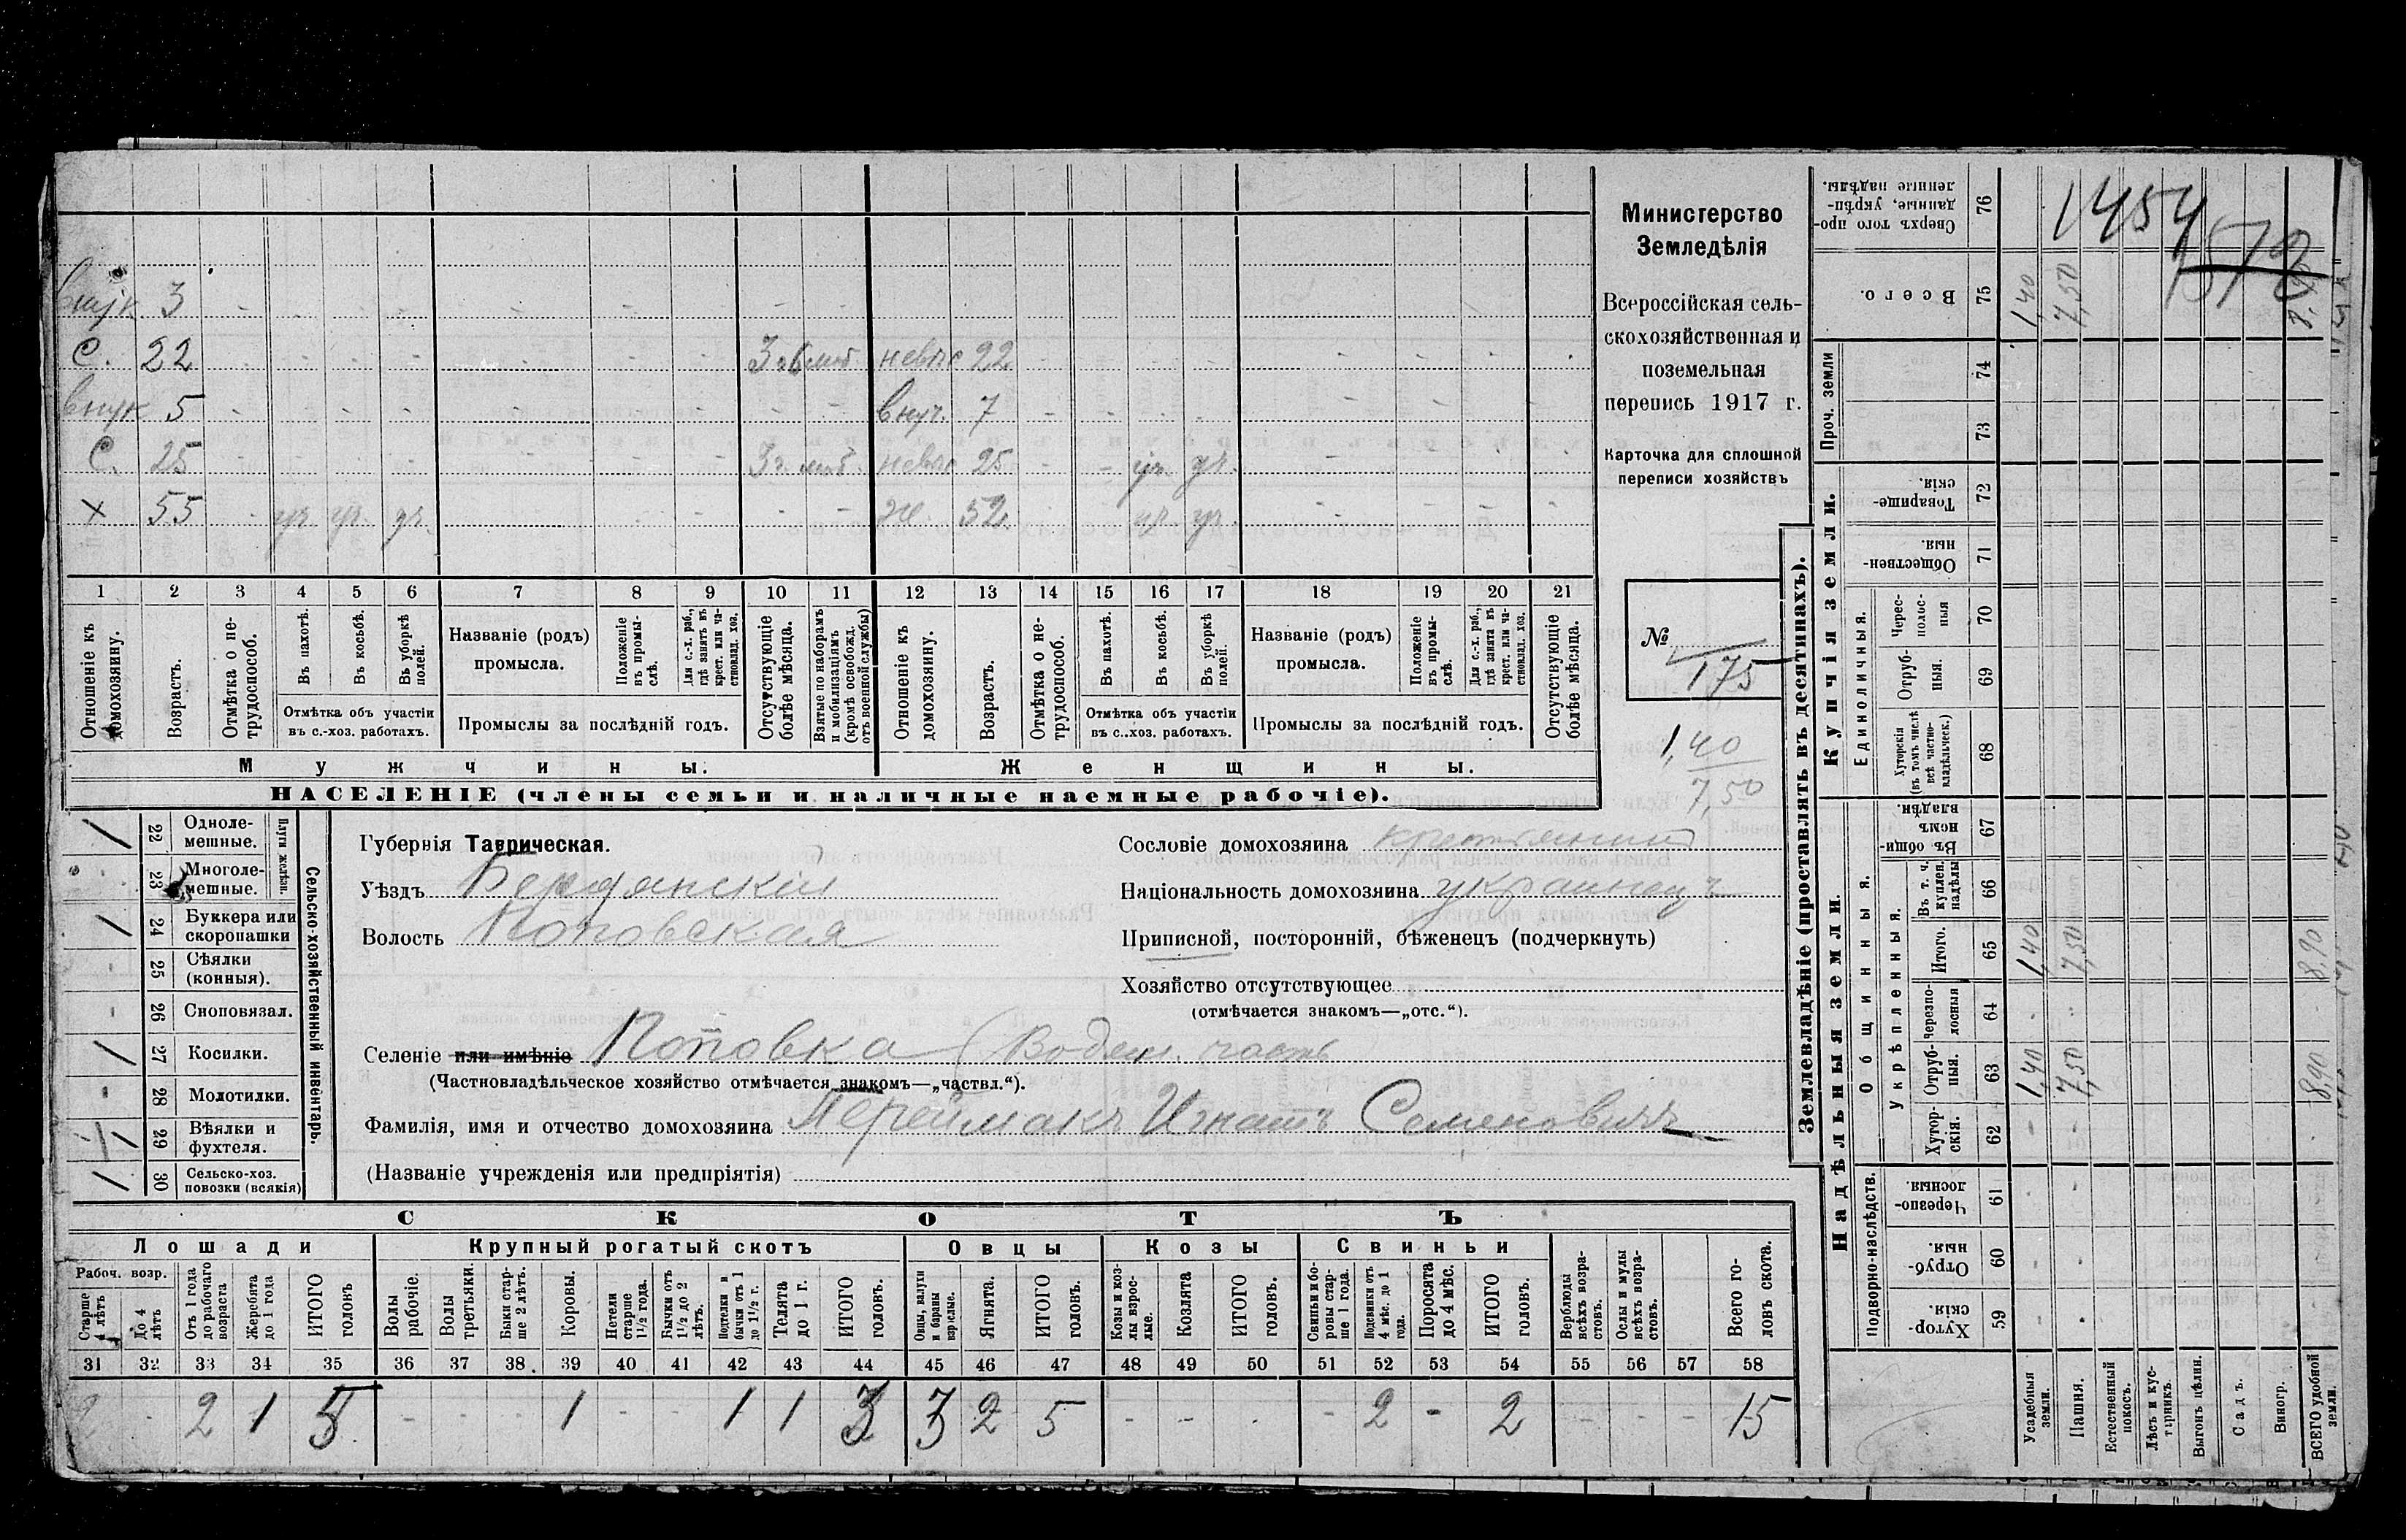 внук 3 - - - - - - - - -
С. 22 - - - - - - - невѣс 22 - - - - - - - -
внук 5 - - - - - - - - - внуч. 7 - - - - - - - -
С. 25 - - - - - - - невѣс 25 - - уч. уч. - - - -
× 55 - уч. уч. уч. - - - - - Ж. 52 уч. уч. - - - -
1 2 3 4 5 6 7 8 9 10 11 12 13 14 15 16 17 18 19 20 21
Отношеніе къ домохозяину.
Возрастъ.
Отмѣтка о нетрудоспособ.
Въ пахотѣ.
Въ косьбѣ.
Въ уборкѣ полей.
Отмѣтка объ участіи въ с.-хоз. работахъ.
Названіе (родъ) промысла.
Положеніе въ промыслѣ.
Для с.-х. раб., гдѣ занятъ въ крест. или частновлад. хоз.
Промыслы за послѣдній годъ.
Отсутствующіе болѣе мѣсяца.
Взятые по наборамъ и мобилизаціямъ (кромѣ освобожд. отъ военной службы)
Отношеніе къ домохозяину.
Возрастъ.
Отмѣтка о нетрудоспособ.
Въ пахотѣ.
Въ косьбѣ.
Въ уборкѣ полей.
Отмѣтка объ участіи въ с..хоз. работахъ.
Названіе (родъ) промысла.
Положеніе въ промыслѣ.
Для с.-х. раб., гдѣ занята въ крест. или частновлад. хоз.
Промыслы за послѣдній годъ.
Отсутствующіе болѣе мѣсяца.
Мужчины.
Женщины.
НАСЕЛЕНІЕ (члены семьи и наличные наемные рабочіе).
Министерство
Земледѣлія
Всероссійская сель-
скохозяйственная и
поземельная
перепись 1917 г.
Карточка для сплошной
переписи хозяйствъ
№
175
1,40
7,50
Сельско-хозяйственный инвентарь.
Плуги желѣзн.
/ 22 Однолемешные.
23 Многолемешные.
/ 24 Буккера или скоропашки
25 Сѣялки (конныя).
26 Сноповязал.
/ 27 Косилки.
28 Молотилки.
29 Вѣялки и фухтеля.
/ 30 Сельско-хоз. повозки (всякія)
Губернія Таврическая.
Уѣздъ Бердянскій
Волость Поповская
Сословіе домохозяина крестьянинъ
Національность домохозяина украинецъ
Приписной, посторонній, бѣженецъ (подчеркнуть)
Хозяйство отсутствующее
(отмѣчается знакомъ—„отс.“).
Селеніе или имѣніе Поповка (Водян. часть
(Частновладѣльческое хозяйство отмѣчается знакомъ—„частвл.“).
Фамилія, имя и отчество домохозяина Переймакъ Игнатъ Семеновичъ
(Названіе учрежденія или предпріятія)
СКОТЪ
Лошади
Крупный рогатый скотъ
Овцы
Козы
Свиньи
Рабоч. возр.
Старше 4 лѣтъ
До 4 лѣтъ
Отъ 1 года до рабочаго возраста
Жеребята до 1 года
ИТОГО головъ
Волы рабочіе.
Волы третьяки.
Быки старше 2 лѣтъ.
Коровы.
Нетели старше 1½ года.
Бычки отъ 1½ до 2 лѣтъ.
Подтелки и бычки отъ 1 до 1½ г.
Телята до 1 г.
ИТОГО головъ.
Овцы, валухи и бараны взрослые.
Ягнята.
ИТОГО головъ.
Козы и козлы взрослые.
Козлята
ИТОГО головъ.
Свиньи и боровы старше 1 года.
Подсвинки отъ 4 мѣс. до 1 года.
Поросята до 4 мѣс.
ИТОГО головъ.
Верблюды всѣхъ возрастовъ.
Ослы и мулы всѣхъ возрастовъ.
Всего головъ скота.
31 32 33 34 35 36 37 38. 39 40 41 42 43 44 45 46 47 48 49 50 51 52 53 54 55 56 57 58
2 - 2 1 5 - - - 1 - - 1 1 3 3 2 5 - - - - 2 - 2 - - - 15
Землевладѣніе (проставлять въ десятинахъ).
Купчія земли.
Надѣльныя земли.
Проч. земли
Единоличныя.
Общинныя.
Укрѣпленныя.
Подворно-наслѣдств.
76 Сверхъ того проданные, укрѣпленные надѣлы.
75 Всего. 1,40 7,50 8,90
74
73
72 Товарищескія.
71 Общественныя.
70 Чересполосныя
69 Отрубныя.
68 Хуторскія (въ томъ числѣ всѣ частновладѣльческ.)
67 Въ общинномъ владѣн.
66 Въ т. ч. куплен. надѣлы
65 Итого. 1,40 7,50 8,90
64 Черезполосныя
63 Отрубныя. 1,40 7,50 8,90
62 Хуторскія.
61 Черезполосныя.
60 Отрубныя.
59 Хуторскія
Усадебныя земли.
Пашня.
Естественный покосъ.
Лѣсъ и кустарникъ.
Выгонъ цѣлин.
Садъ.
Виногр.
ВСЕГО удобной земли.
1454
1572